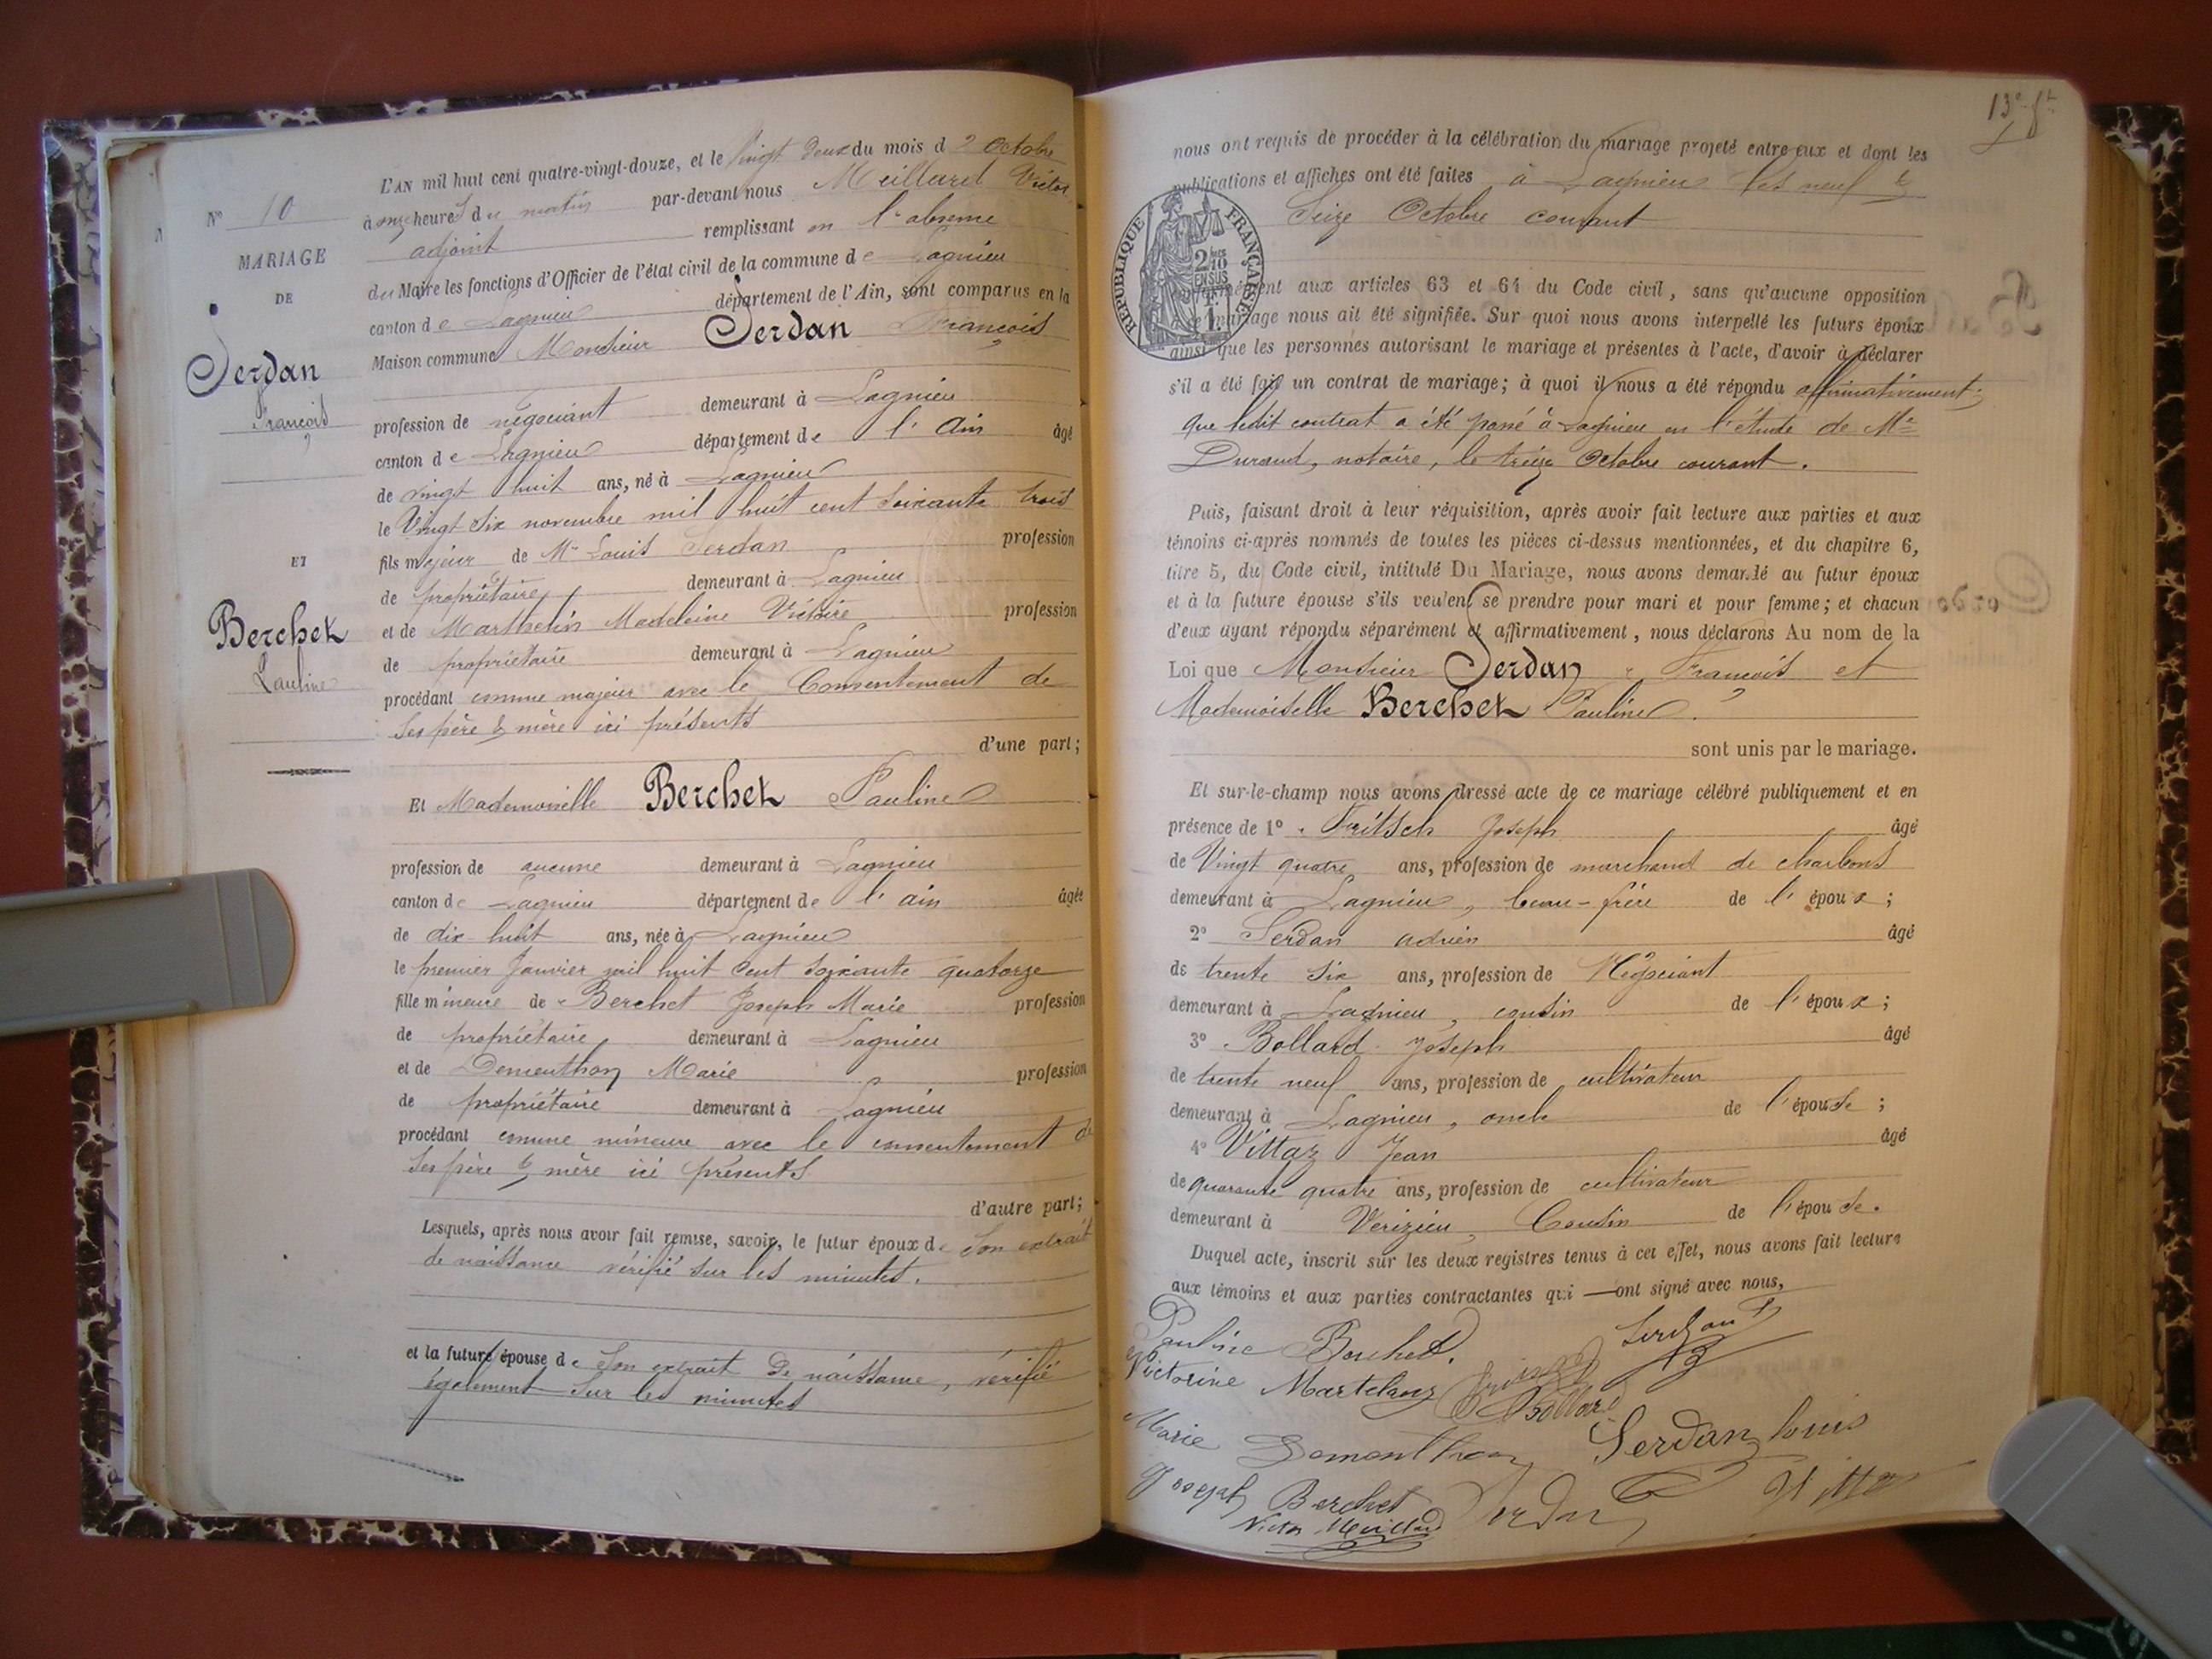 L'AN mil huit cent quatre-vingt-douze, et le vingt deux du mois d'Octobre
à onze heures du matin par-devant nous Meillard Victor
adjoint remplissant en l'absence
du Maire les fonctions d'Officier de l'état civil de la commune de Lagnieu
canton de Lagnieu département de l'Ain, sont comparus en la
Maison commune Monsieur Serdan François
profession de négociant demeurant à Lagnieu
canton de Lagnieu département de l'Ain âgé
de vingt huit ans, né à Lagnieu
le Vingt six novembre mil huit cent soixante trois
fils majeur de Mr Louis Serdan profession
de propriétaire demeurant à Lagnieu
et de Marthelin Madeleine Victoire profession
de propriétaire demeurant à Lagnieu
procédant comme majeur avec le Consentement de
ses père & mère ici présents
d'une part;
Et Mademoiselle Berchet Pauline
profession de aucune demeurant à Lagnieu
canton de Lagnieu département de l'ain âgée
de dix-huit ans, née à Lagnieu
le premier Janvier mil huit cent soixante quatorze
fille mineure de Berchet Joseph Marie profession
de propriétaire demeurant à Lagnieu
et de Dementhon Marie profession
de propriétaire demeurant à Lagnieu
procédant comme mineure avec le consentement de
ses père & mère ici présents
d'autre part;
Lesquels, après nous avoir fait remise, savoir, le futur époux de son extrait
de naissance vérifié sur les minutes.
et la future épouse de son extrait de naissance, vérifié
également sur les minutes
No 10
MARIAGE
DE
Serdan
François
ET
Berchet
Pauline
13e ft
nous ont requis de procéder à la célébration du mariage projeté entre eux et dont les
publications et affiches ont été faites à Lagnieu les neuf &
Seize Octobre courant
RÉPUBLIQUE FRANÇAISE
2/10
EN SUS
conformément aux articles 63 et 64 du Code civil, sans qu'aucune opposition
à ce mariage nous ait été signifiée. Sur quoi nous avons interpellé les futurs époux
ainsi que les personnes autorisant le mariage et présentes à l'acte, d'avoir à déclarer
s'il a été fait un contrat de mariage; à quoi il nous a été répondu affirmativement:
que ledit contrat a été passé à Lagnieu en l'étude de Me
Durand, notaire, le treize Octobre courant.
Puis, faisant droit à leur réquisition, après avoir fait lecture aux parties et aux
témoins ci-après nommés de toutes les pièces ci-dessus mentionnées, et du chapitre 6,
titre 5, du Code civil, intitulé Du Mariage, nous avons demandé au futur époux
et à la future épouse s'ils veulent se prendre pour mari et pour femme; et chacun
d'eux ayant répondu séparément et affirmativement, nous déclarons Au nom de la
Loi que Monsieur Serdan François et
Mademoiselle Berchet Pauline.
sont unis par le mariage.
Et sur-le-champ nous avons dressé acte de ce mariage célébré publiquement et en
présence de 1o Fritsch Joseph âgé
de Vingt quatre ans, profession de marchand de charbons
demeurant à Lagnieu, beau-frère de l'époux;
2o Serdan adrien âgé
de trente six ans, profession de Négociant
demeurant à Lagnieu, cousin de l'époux;
3o Bollard Joseph âgé
de trente neuf ans, profession de cultivateur
demeurant à Lagnieu, oncle de l'épouse;
4o Vittaz Jean âgé
de quarante quatre ans, profession de cultivateur
demeurant à Verizieu, Cousin de l'épouse.
Duquel acte, inscrit sur les deux registres tenus à cet effet, nous avons fait lecture
aux témoins et aux parties contractantes qui — ont signé avec nous,
Pauline Berchet.
Victorine
Bollard
Marie Demonthon Serdan louis
Joseph Berchet Serdan
Victor Meillard